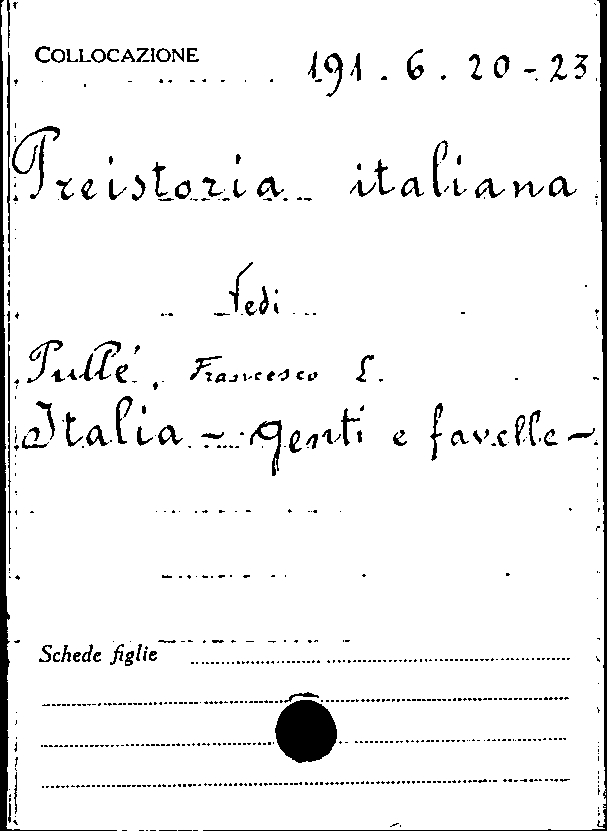 COLLOCAZIONE 191.6.20-23
Preistoria italiana
Vedi
Pullé, Francesco L.
Italia - genti e favelle -
Schede figlie